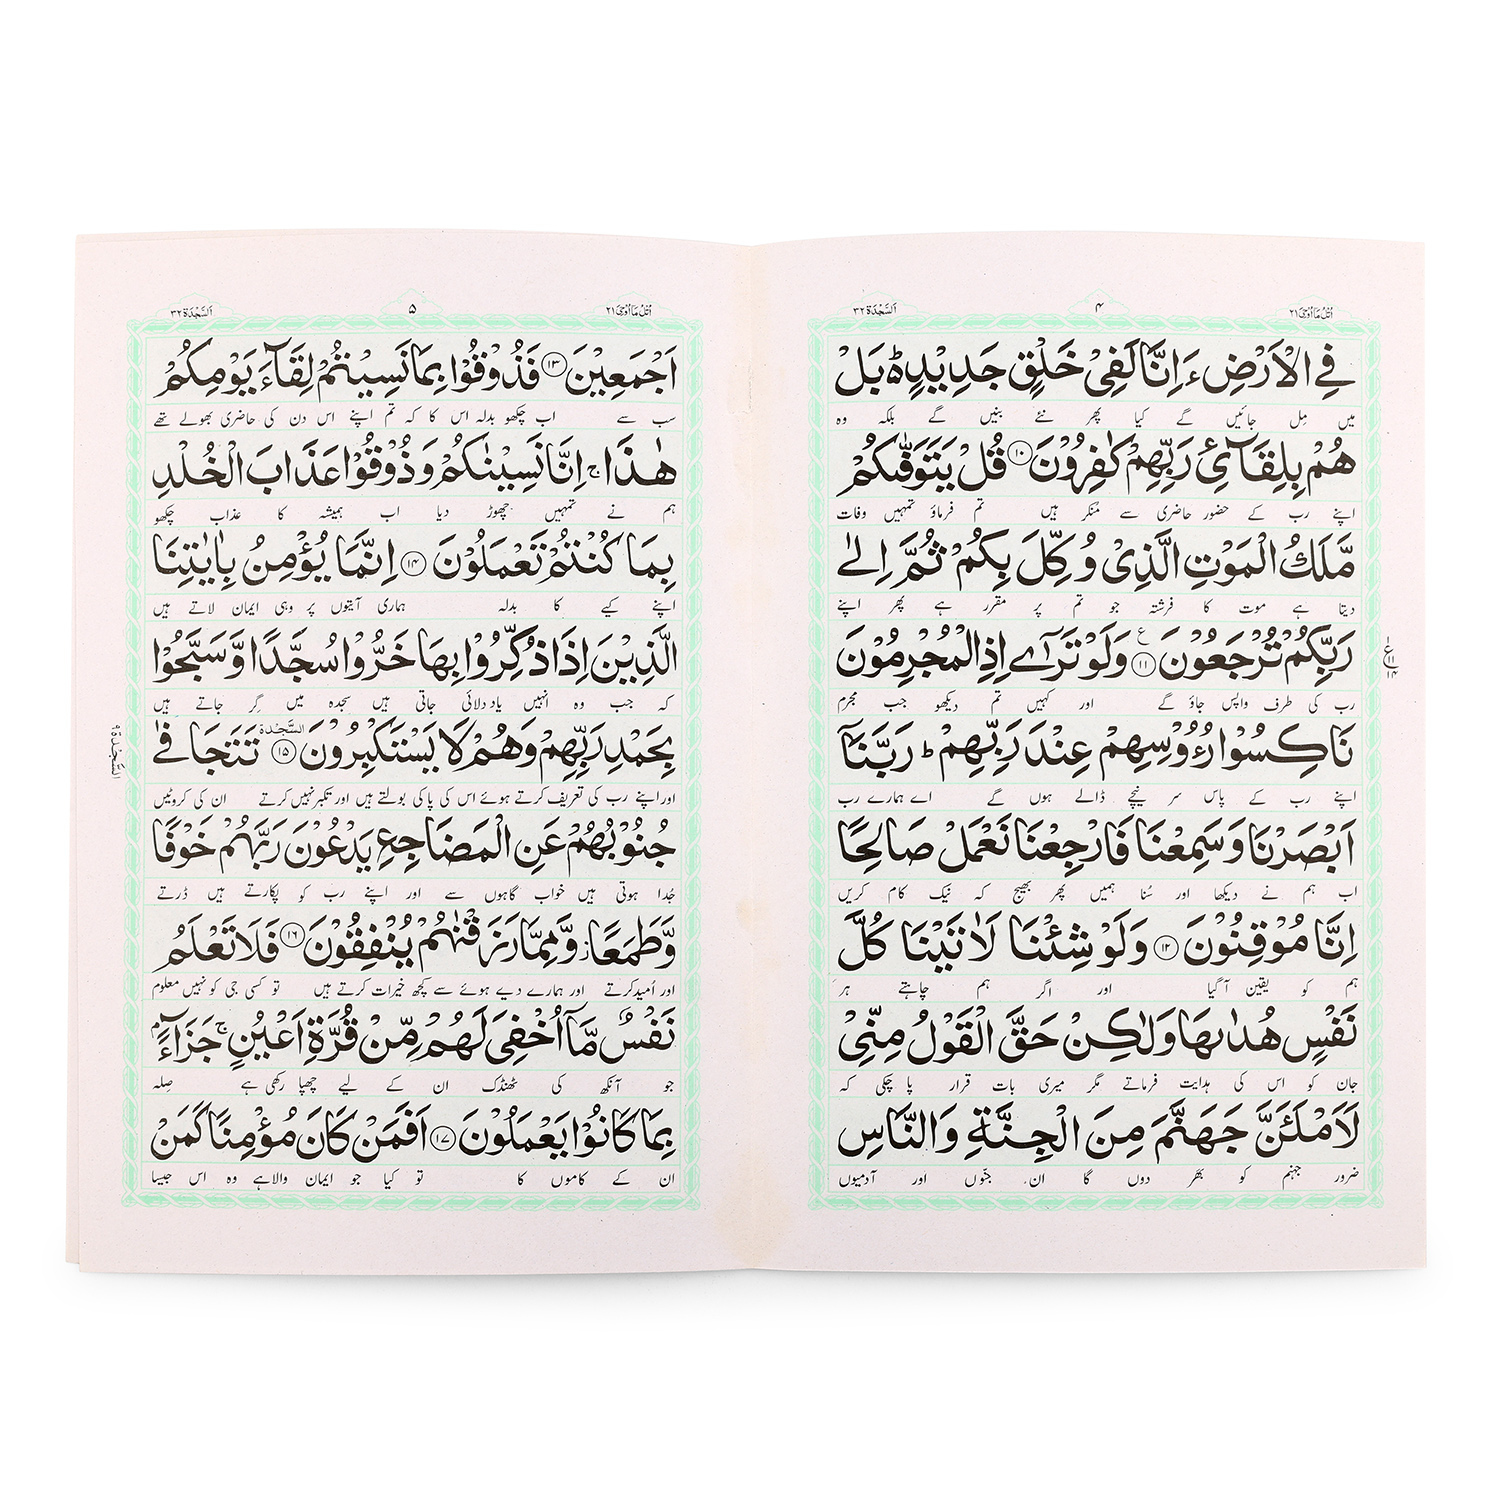 اُتۡلُ مَاۤ اُوۡحِیَ ۲۱
۴
اَلسَّجْدَة ۳۲
فِی الْاَرْضِ ءَ اِنَّا لَفِیْ خَلْقٍ جَدِیْدٍ ؕ۬ بَلْ
میں مِل جائیں گے کیا پھر نئے بنیں گے بلکہ وہ
هُمْ بِلِقَآئِ رَبِّهِمْ كٰفِرُوْنَ ۱۰ قُلْ یَتَوَفّٰىكُمْ
اپنے رب کے حضور حاضری سے منکر ہیں تم فرماؤ تمہیں وفات
مَّلَكُ الْمَوْتِ الَّذِیْ وُكِّلَ بِكُمْ ثُمَّ اِلٰی
دیتا ہے موت کا فرشتہ جو تم پر مقرر ہے پھر اپنے
رَبِّكُمْ تُرْجَعُوْنَ ۱۱ ع وَلَوْ تَرٰۤی اِذِ الْمُجْرِمُوْنَ
ع ۱۱ ۱۴
رب کی طرف واپس جاؤ گے اور کہیں تم دیکھو جب مجرم
نَاكِسُوْا رُءُوْسِهِمْ عِنْدَ رَبِّهِمْ ؕ رَبَّنَاۤ
اپنے رب کے پاس سر نیچے ڈالے ہوں گے اے ہمارے رب
اَبْصَرْنَا وَسَمِعْنَا فَارْجِعْنَا نَعْمَلْ صَالِحًا
اب ہم نے دیکھا اور سُنا ہمیں پھر بھیج کہ نیک کام کریں
اِنَّا مُوْقِنُوْنَ ۱۲ وَلَوْ شِئْنَا لَاٰتَیْنَا كُلَّ
ہم کو یقین آگیا اور اگر ہم چاہتے ہر
نَفْسٍ هُدٰىهَا وَلٰكِنْ حَقَّ الْقَوْلُ مِنِّیْ
جان کو اس کی ہدایت فرماتے مگر میری بات قرار پا چکی کہ
لَاَمْلَئَنَّ جَهَنَّمَ مِنَ الْجِنَّةِ وَالنَّاسِ
ضرور جہنم کو بھر دوں گا ان جنّوں اور آدمیوں
اُتۡلُ مَاۤ اُوۡحِیَ ۲۱
۵
اَلسَّجْدَة ۳۲
اَجْمَعِیْنَ ۱۳ فَذُوْقُوْا بِمَا نَسِیْتُمْ لِقَآءَ یَوْمِكُمْ
سب سے اب چکھو بدلہ اس کا کہ تم اپنے اس دن کی حاضری بھولے تھے
هٰذَا ۚ اِنَّا نَسِیْنٰكُمْ وَذُوْقُوْا عَذَابَ الْخُلْدِ
ہم نے تمہیں چھوڑ دیا اب ہمیشہ کا عذاب چکھو
بِمَا كُنْتُمْ تَعْمَلُوْنَ ۱۴ اِنَّمَا یُؤْمِنُ بِاٰیٰتِنَا
اپنے کیے کا بدلہ ہماری آیتوں پر وہی ایمان لاتے ہیں
الَّذِیْنَ اِذَا ذُكِّرُوْا بِهَا خَرُّوْا سُجَّدًا وَّسَبَّحُوْا
کہ جب وہ انہیں یاد دلائی جاتی ہیں سجدہ میں گِر جاتے ہیں
بِحَمْدِ رَبِّهِمْ وَهُمْ لَا یَسْتَكْبِرُوْنَ ۱۵ السَّجْدَة تَتَجَافٰی
السَّجْدَة ۹
اور اپنے رب کی تعریف کرتے ہوئے اس کی پاکی بولتے ہیں اور تکبر نہیں کرتے ان کی کروٹیں
جُنُوْبُهُمْ عَنِ الْمَضَاجِعِ یَدْعُوْنَ رَبَّهُمْ خَوْفًا
جُدا ہوتی ہیں خواب گاہوں سے اور اپنے رب کو پکارتے ہیں ڈرتے
وَّطَمَعًا ؗ وَّمِمَّا رَزَقْنٰهُمْ یُنْفِقُوْنَ ۱۶ فَلَا تَعْلَمُ
اور اُمید کرتے اور ہمارے دیے ہوئے سے کچھ خیرات کرتے ہیں تو کسی جی کو نہیں معلوم
نَفْسٌ مَّاۤ اُخْفِیَ لَهُمْ مِّنْ قُرَّةِ اَعْیُنٍ ۚ جَزَآءًۢ
جو آنکھ کی ٹھنڈک ان کے لیے چھپا رکھی ہے صِلہ
بِمَا كَانُوْا یَعْمَلُوْنَ ۱۷ اَفَمَنْ كَانَ مُؤْمِنًا كَمَنْ
ان کے کاموں کا تو کیا جو ایمان والا ہے وہ اس جیسا